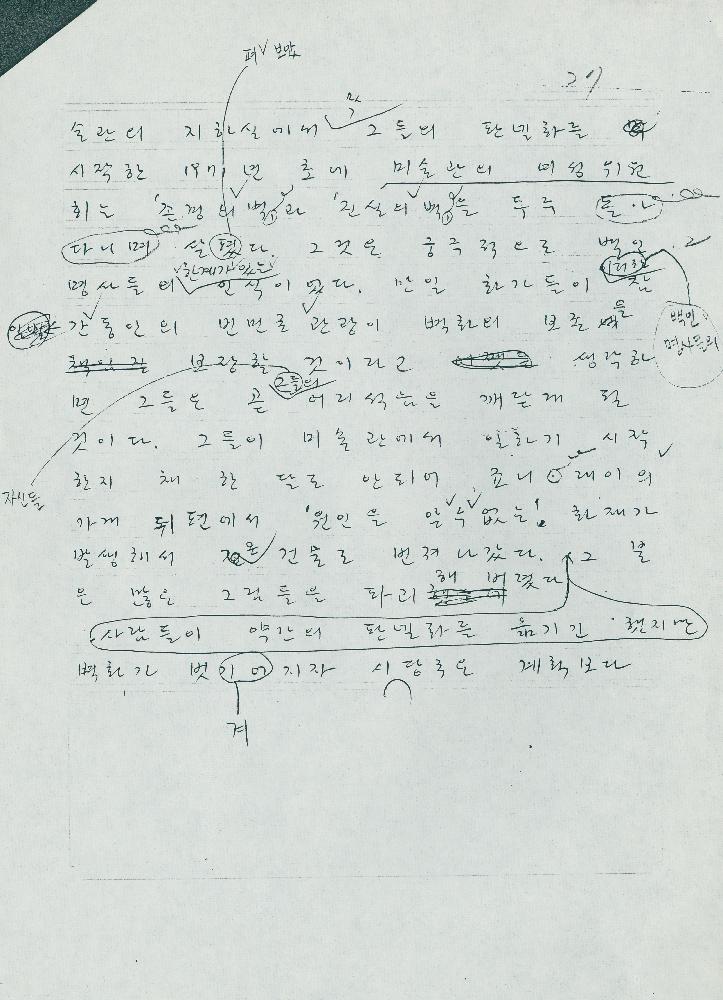 펴 보았
27
술관의 지하실에서 막 그들의 판넬화를
시작한 1971년 초에 미술관의 여성위원
회는 '존경의 벽'과 '진실의 벽'을 두루 돌아
다니며 살폈다. 그것은 궁극적으로 백인
명사들의 한계가 있는 인식이었다. 만일 화가들이
이러한
백인 명사들의
간 통인의 빈번한 관광이 벽화의 보존을
보장할 것이라고 생각하
면 그들은 곧 그들의 어리석음을 깨닫게 될
것이다. 그들이 미술관에서 일하기 시작
한지 채 한 달도 안되어 죠니 레이의
자신들
가게 뒤편에서 '원인을 알 수 없는' 화재가
발생해서 온 건물로 번져나갔다. 그 불
은 많은 그림들을 파괴해 버렸다
사람들이 약간의 판넬화를 옮기긴 했지만
벽화가 벗기어지자 시당국은 계획보다
겨